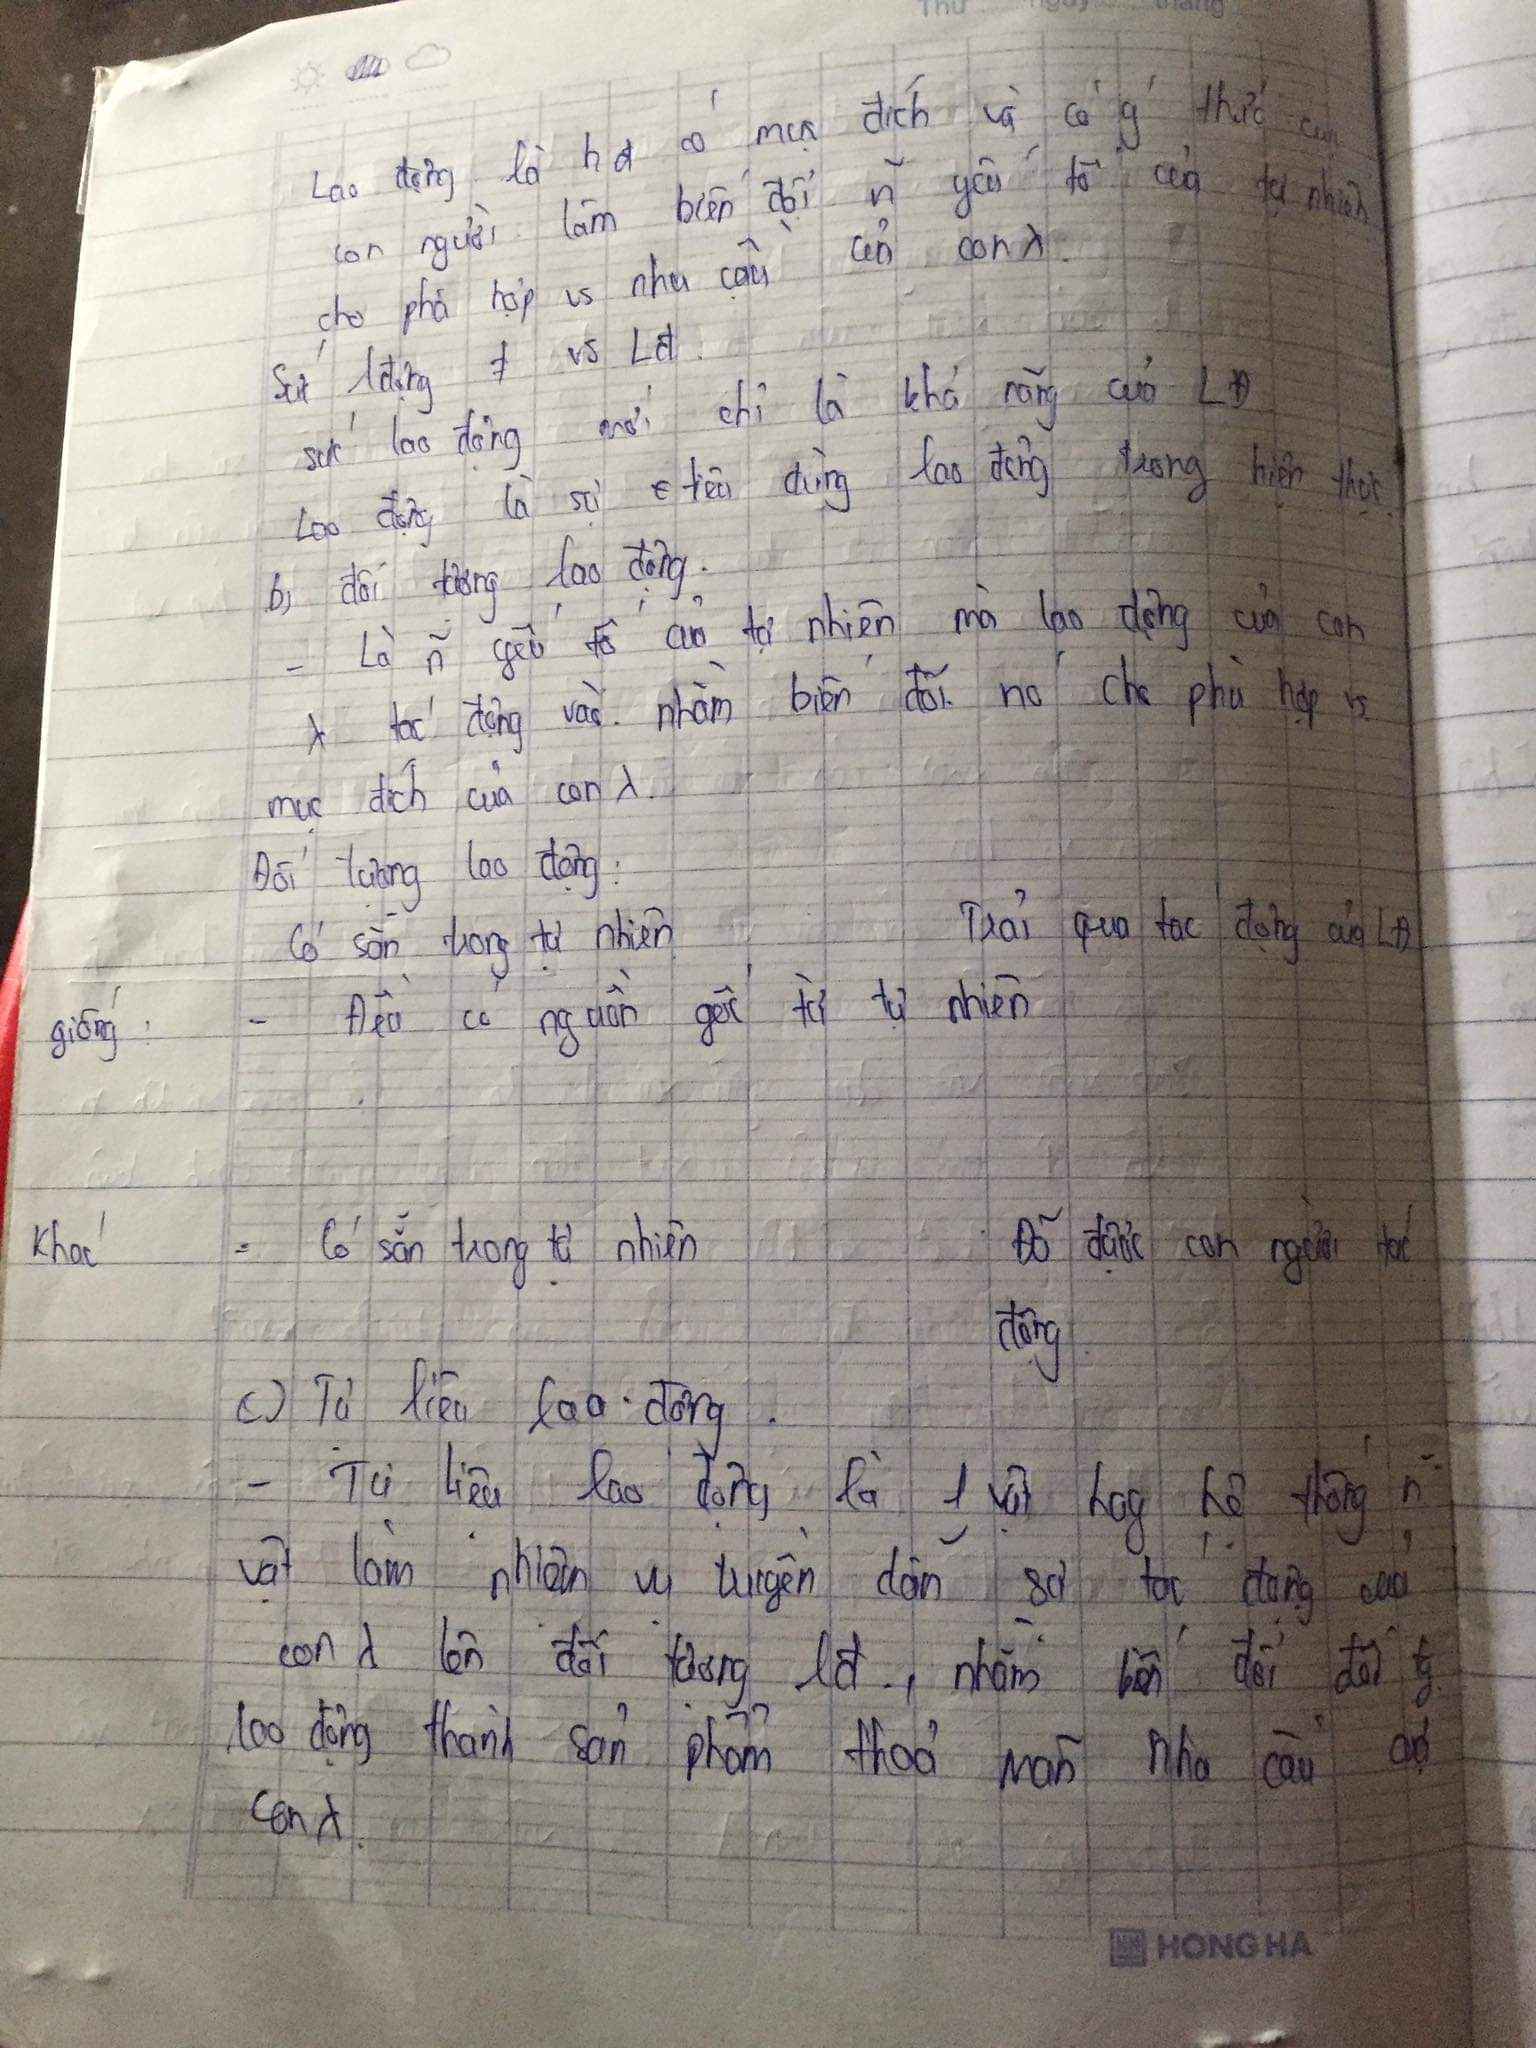 Thứ Ngày tháng
Lao động là hđ có mục đích và có ý thức của
con người làm biến đổi ~n yếu tố của tự nhiên
cho phù hợp vs nhu cầu của con λ.
Sức lđộng ≠ vs Lđ.
sức lao động mới chỉ là khả năng của LĐ
Lao động là sự tiêu dùng lao động trong hiện thực.
b, đối tượng lao động.
- Là ~n yếu tố của tự nhiên mà lao động của con
λ tác động vào nhằm biến đổi nó cho phù hợp vs
mục đích của con λ.
Đối tượng lao động:
Có sẵn trong tự nhiên Trải qua tác động của LĐ
giống: - Đều có nguồn gốc từ tự nhiên
Khác - Có sẵn trong tự nhiên Đã được con người tác
động.
c) Tư liệu lao động.
- Tư liệu lao động là 1 vật hay hệ thống ~n
vật làm nhiệm vụ truyền dẫn sự tác động của
con λ lên đối tượng lđ, nhằm biến đổi đối tg
lao động thành sản phẩm thoả mãn nhu cầu của
con λ.
HONG HA